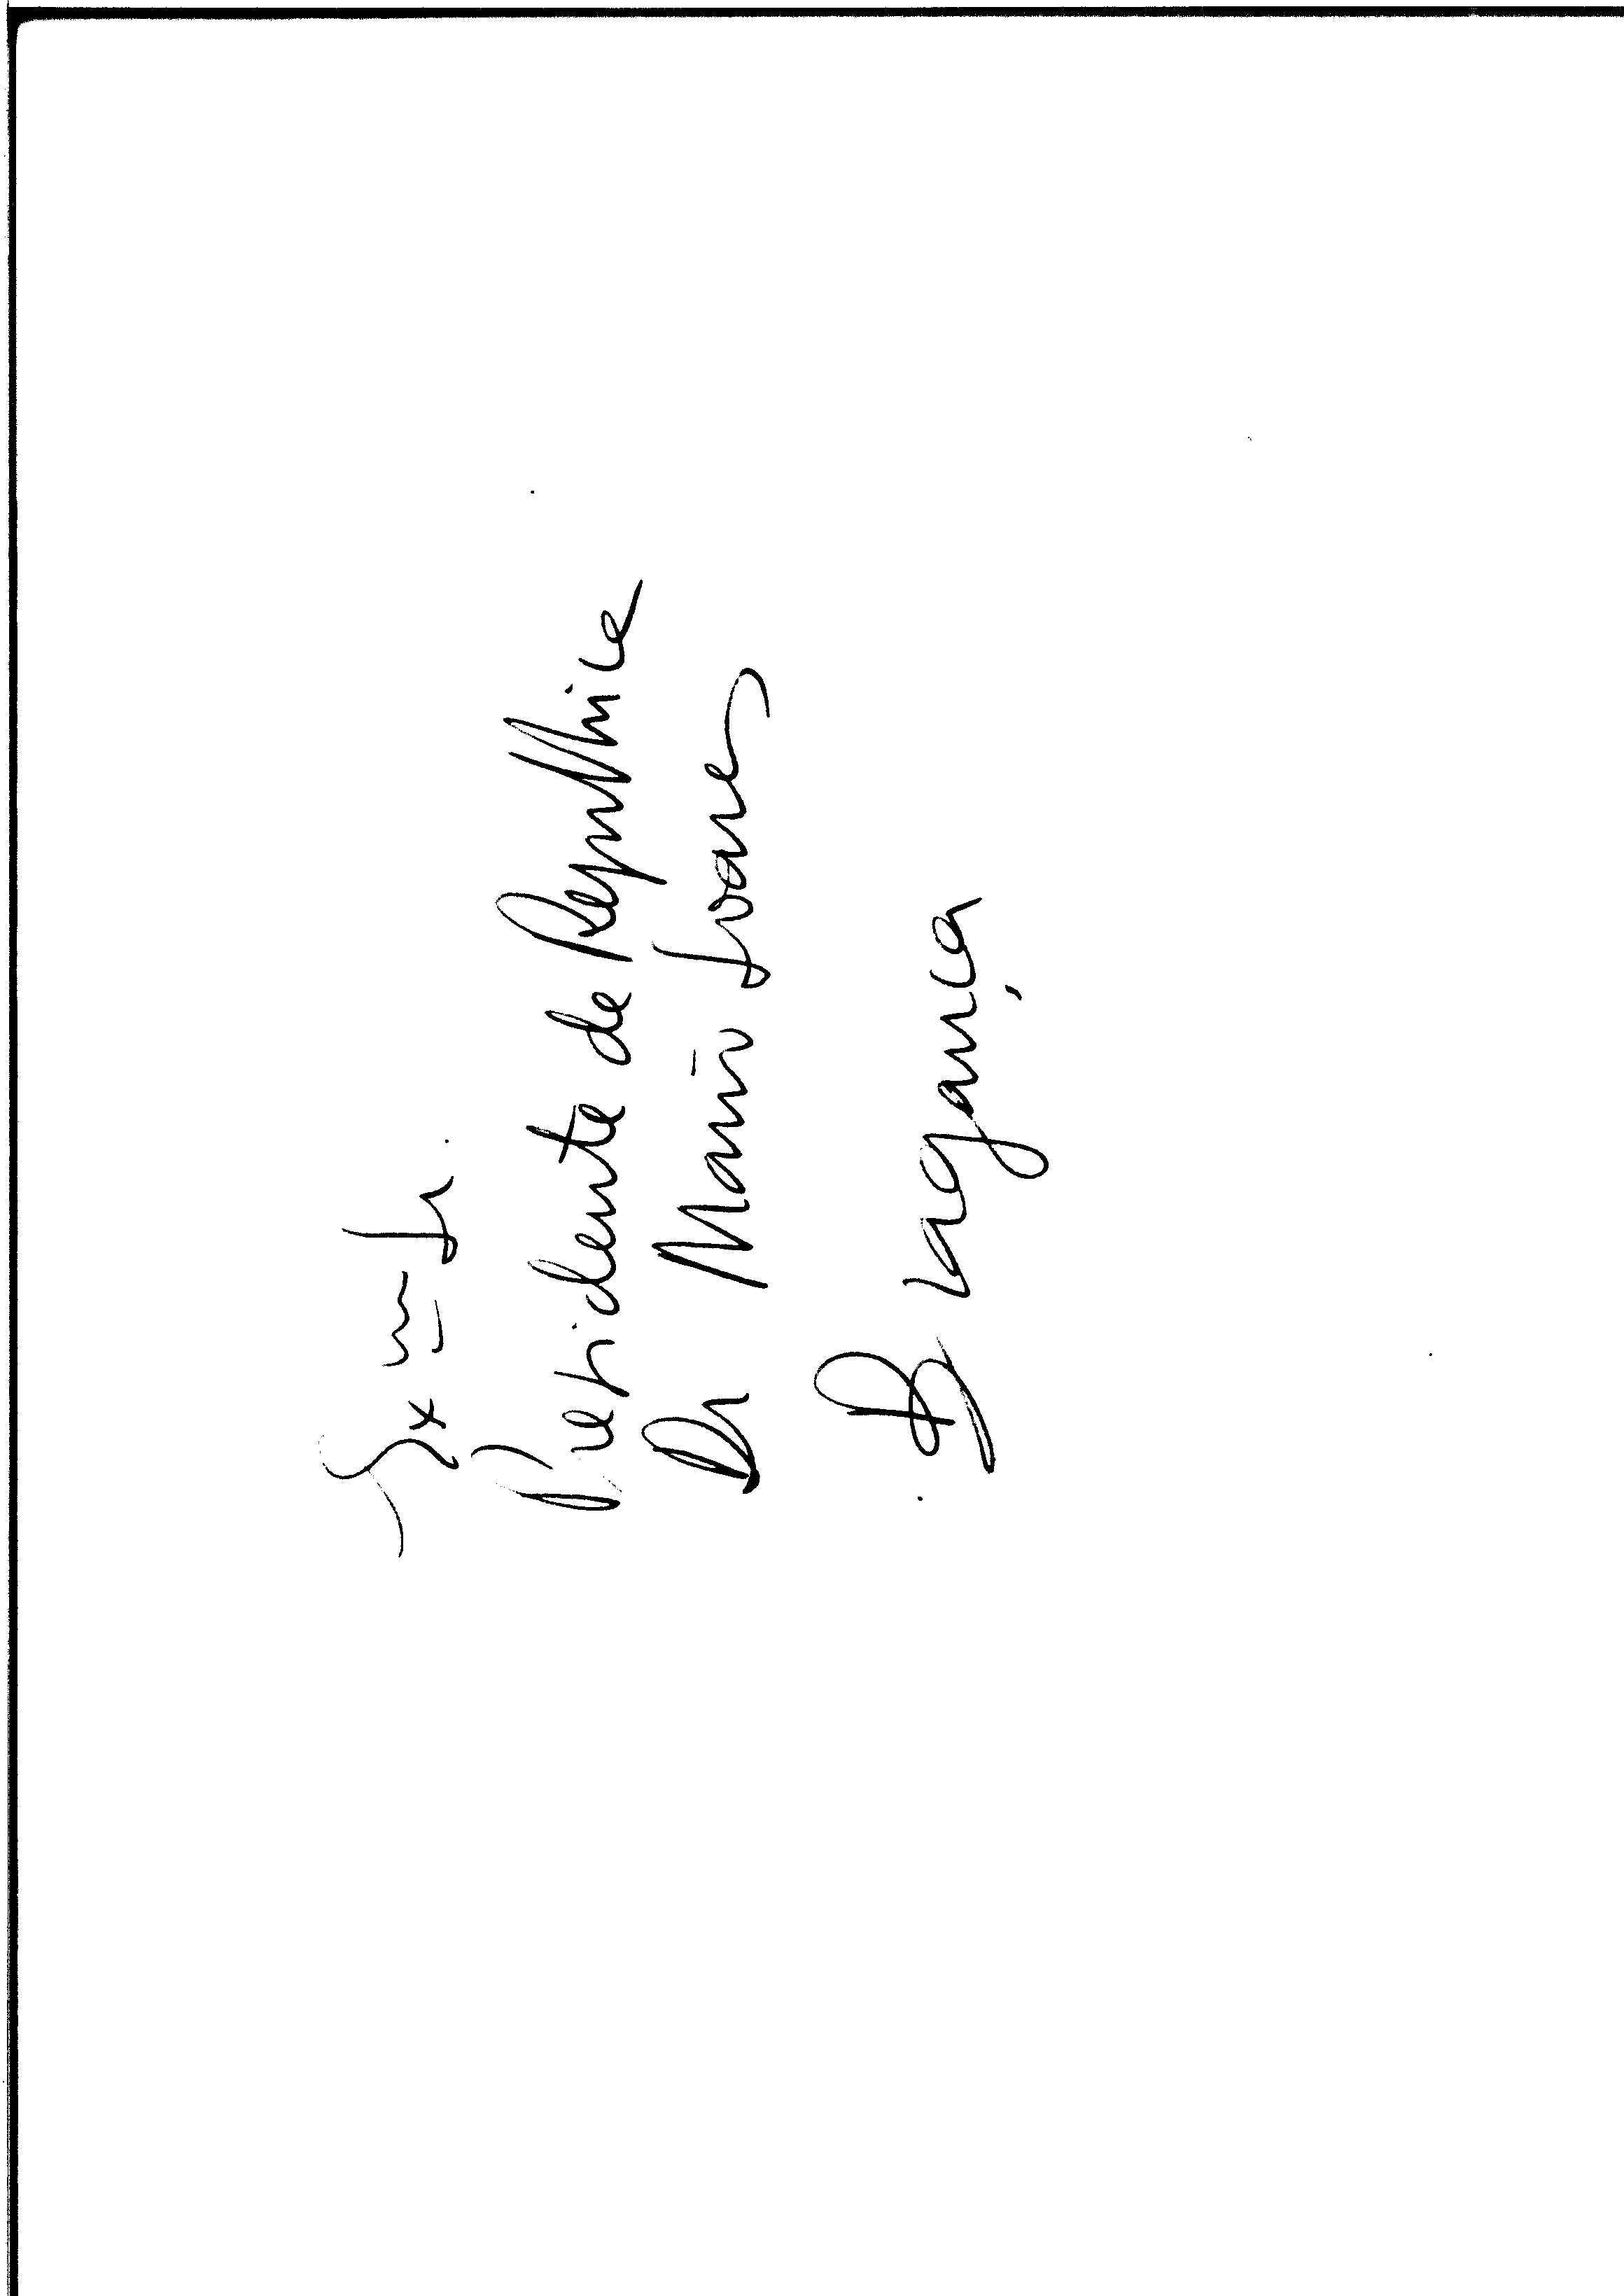 Ex mo Sr.
Presidente da República
Dr Mário Soares
Bragança